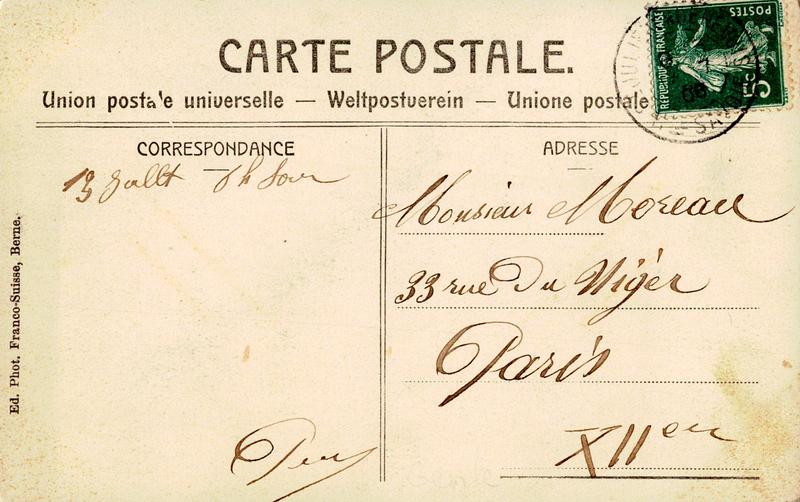 CARTE POSTALE.
Union postale universelle — Weltpostverein — Unione postale
RÉPUBLIQUE FRANÇAISE
POSTES
5c
CORRESPONDANCE
ADRESSE
13
Monsieur Moreau
33 rue Du Niger
Paris
XII em
Ed. Phot. Franco-Suisse, Berne.